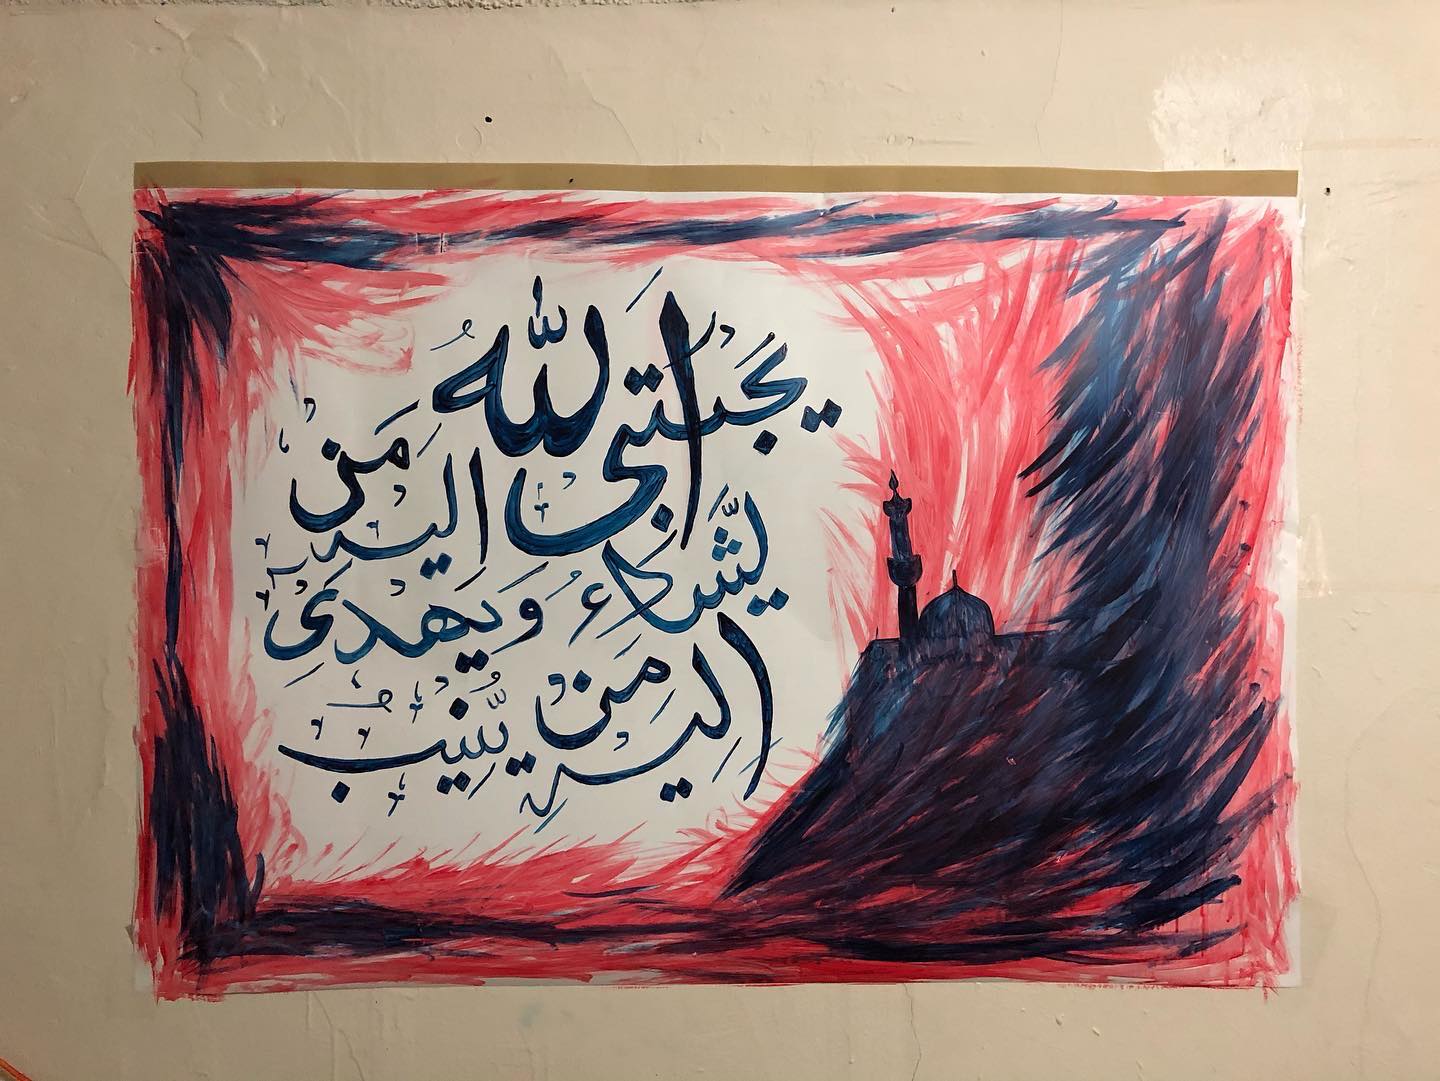 اَللّٰهُ يَجْتَبِى
اِلَيْهِ مَنْ
يَّشَاءُ وَيَهْدِى
اِلَيْهِ مَنْ يُّنِيْبُ